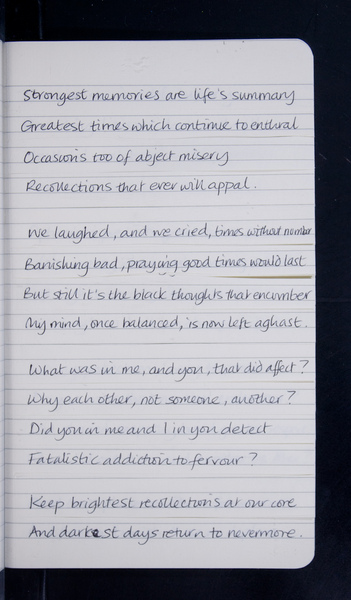 Strongest memories are life's summary
Greatest times which continue to enthral
Occasions too of abject misery
Recollections that ever will appal.
We laughed, and we cried, times without number
Banishing bad, praying good times would last
But still it's the black thoughts that encumber
My mind, once balanced, is now left aghast.
What was in me, and you, that did affect?
Why each other, not someone, another?
Did you in me and I in you detect
Fatalistic addiction to fervour?
Keep brightest recollections at our core
And darkest days return to nevermore.